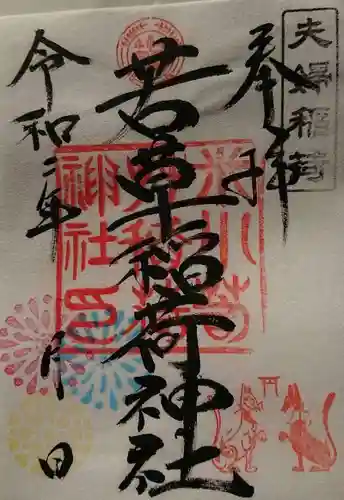 夫婦稲荷
奉拝
若草稲荷神社
令和二年
月
日
神社印